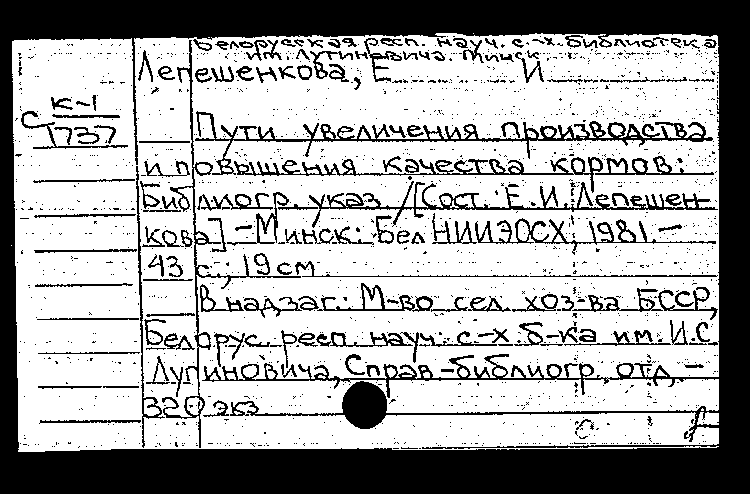 Белорусская респ. науч. с.-х. библиотека
им. Лупиновича. Минск
Лепешенкова, Е И
К-1
С 1737
Пути увеличения производства
и повышения качества кормов:
Библиогр. указ. /[Сост. Е.И. Лепешен-
кова] -Минск: БелНИИЭОСХ, 1981.-
43 с.; 19 см
В надзаг.: М-во сел. хоз-ва БССР,
Белорус. респ. науч. с.-х. б-ка им. И.С.
Лупиновича, Справ.-библиогр. отд. -
320 экз